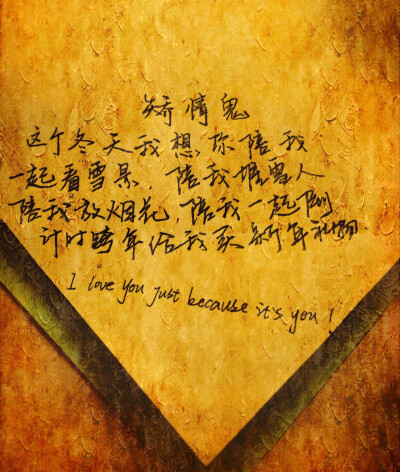 矫情鬼
这个冬天我想你陪我
一起看雪景,陪我堆雪人
陪我放烟花,陪我一起倒
计时跨年给我买新年礼物.
I love you just because it's you!